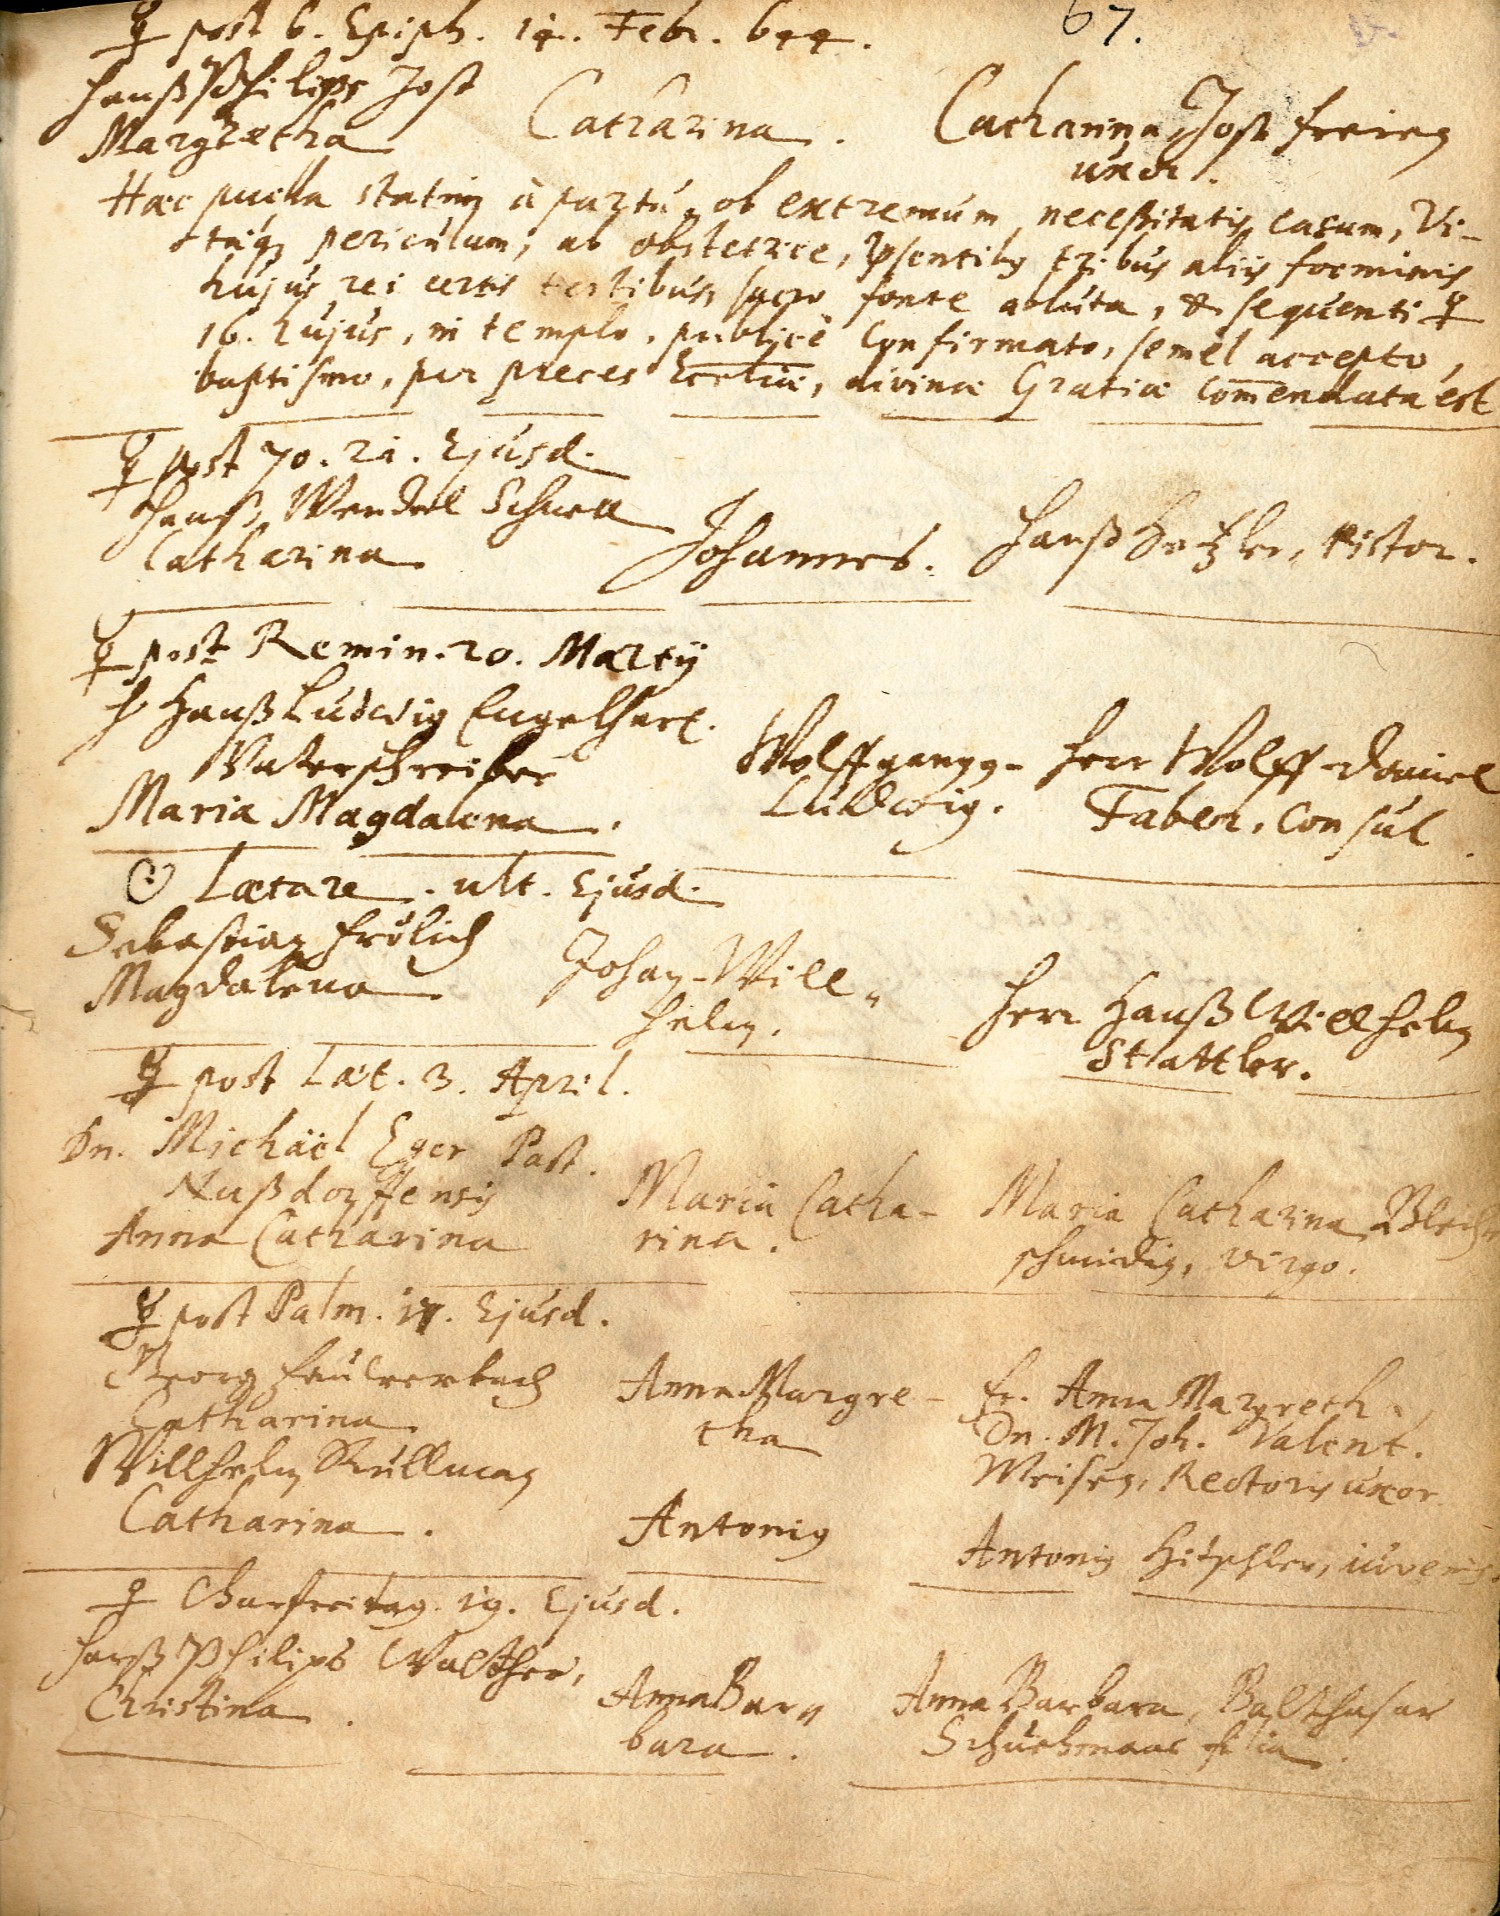 67.
☿ post 6. Epiph. 14. Febr. 644.
Hanß Philips Jost
Margretha
Catharina.
Catharina, Jost Freien
uxor.
Hæc puella statim à partu, ob extremum necessitatis casum, Vi-
tæq; periculum, ab obstetrice, psentib9 tribus aliis foeminis
hujus rei certis testibus, sacro fonte abluta, & sequenti ♀
16. hujus, in templo, publicè confirmato, semel accepto,
baptismo, per preces Eccliæ, divinæ Gratiæ com̄endata est
☿ post 70. 21. Ejusd.
Hanß Wendel Schnell
Catharina
Johannes.
Hanß Hetzler, Pistor.
☿ post Remin. 20. Martij
H Hanß Ludwig Engelhart.
Underschreiber
Maria Magdalena.
Wolffgang-
Ludwig.
Herr Wolff Daniel
Faber, Consul
☉ Lætare. ult. Ejusd.
Sebastian Frölich
Magdalena
Johan-Will„
helm.
Herr Hanß Willhelm
Stattler.
☿ post Læt. 3. April.
Dn. Michaël Eger Past.
Nußdorffensis
Anna Catharina
Maria Catha-
rina.
Maria Catharina Blech-
schmidin, virgo.
☿ post Palm. 17. Ejusd.
Georg
Catharina
Anna Margre-
tha
Fr. Anna Margreth,
Dn. M. Joh. Valent.
Weisen, Rectoris uxor
Willhelm Rullman
Catharina.
Antonius
Antonius Hitschler, iuvenis.
♀ Charfreitag. 19. Ejusd.
Hanß Philips Walther,
Christina.
Anna Bar„
bara.
Anna Barbara, Balthasar
Schuchmans filia.